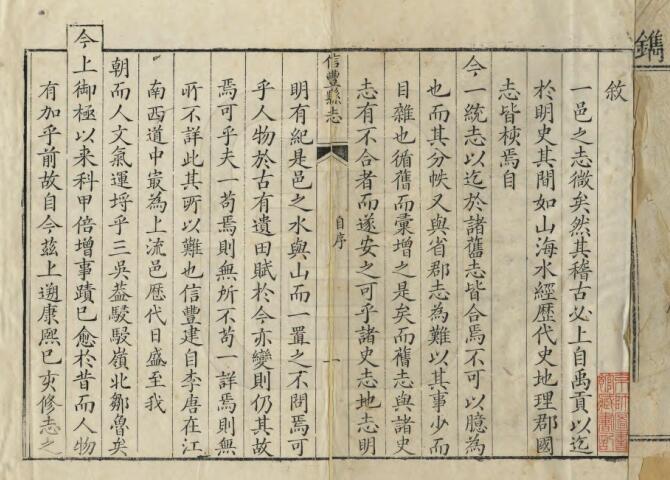 敘
一邑之志徵矣然其稽古必上自禹貢以迄
於明史其間如山海水經歷代史地理郡國
志皆梜焉自
今一統志以迄於諸舊志皆合焉不可以臆為
也而其分帙又與省郡志為難以其事少而
目雜也循舊而彙增之是矣而舊志與諸史
志有不合者而遂安之可乎諸史志地志明
信豐縣志
自序
一
明有紀是邑之水與山而一置之不問焉可
乎人物於古有遺田賦於今亦變則仍其故
焉可乎夫一苟焉則無所不苟一詳焉則無
所不詳此其所以難也信豐建自李唐在江
南西道中最為上流邑歷代日盛至我
朝而人文氣運埒乎三吳葢駸駸嶺北鄒魯矣
今上御極以来科甲倍增事蹟已愈於昔而人物
有加乎前故自今茲上遡康熙巳亥修志之
鐫